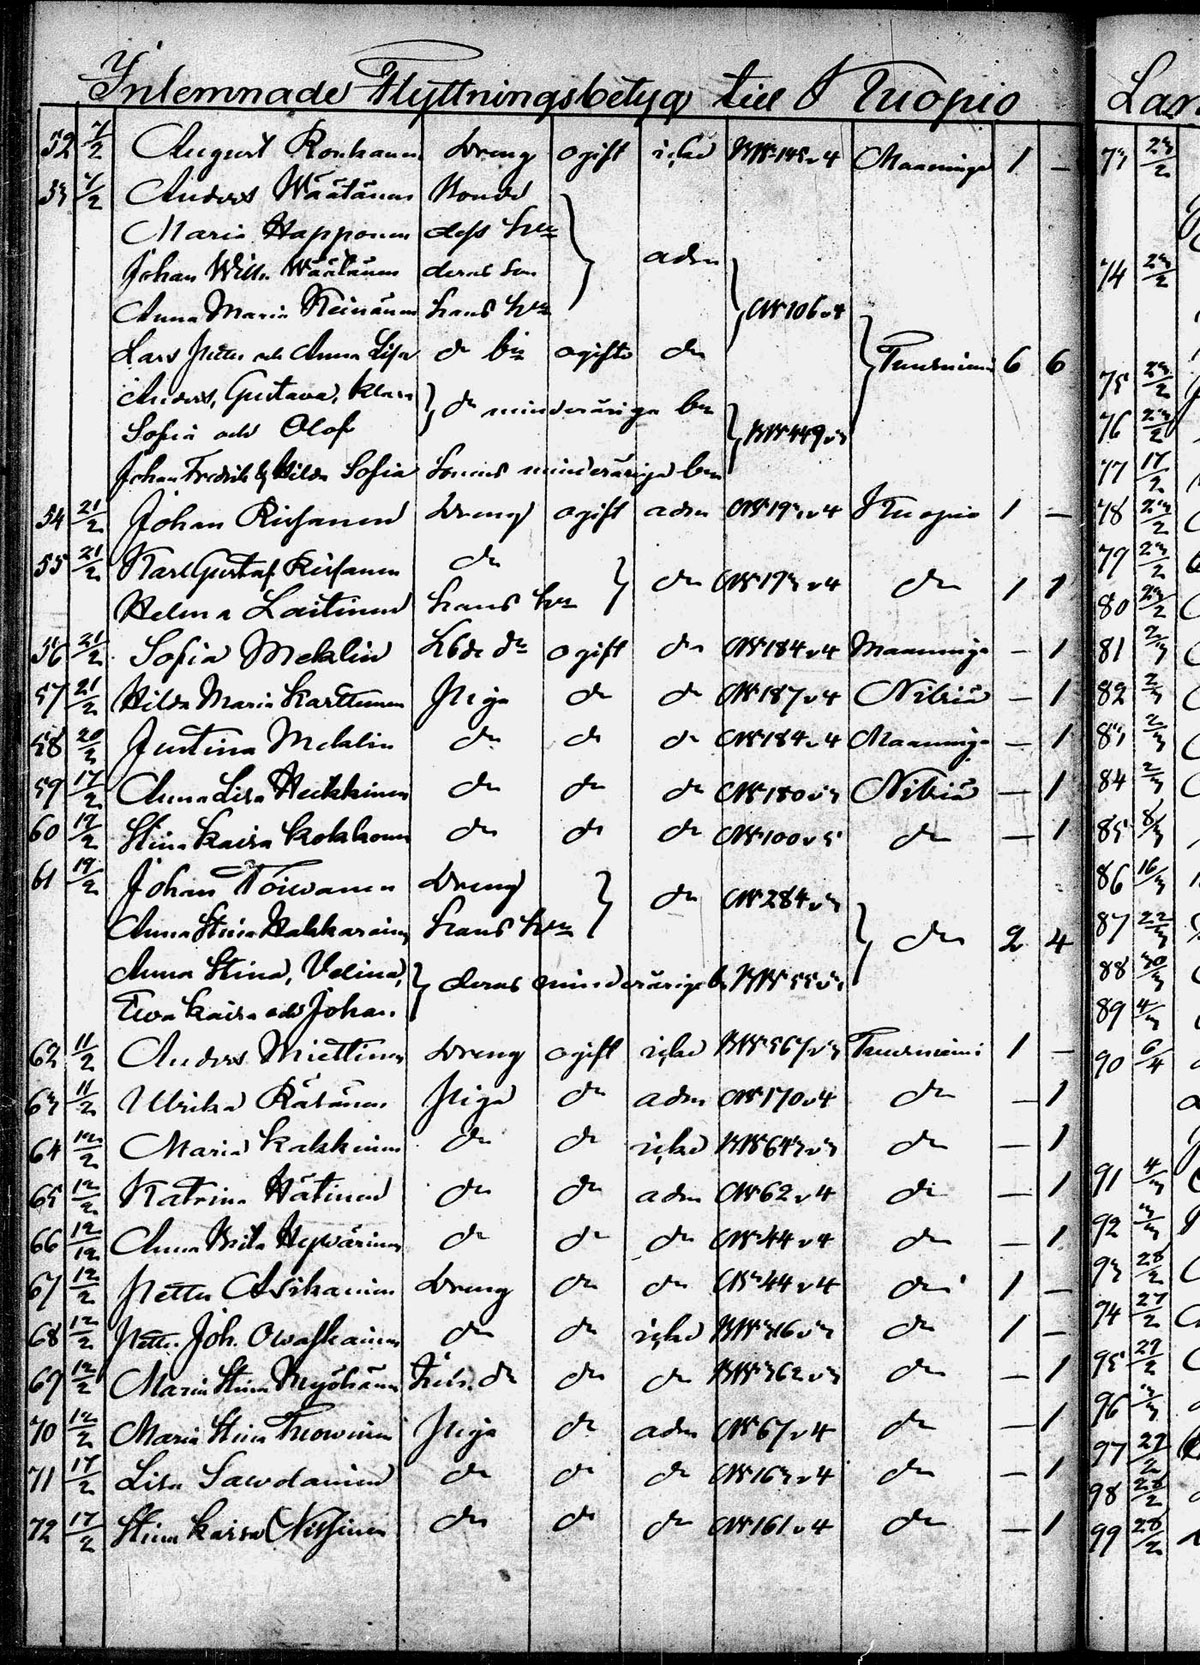 Inlemnade Flyttningsbetyg till Kuopio
52 7/2 August Ronkanen Dreng ogift icke N 145 v 4 Maaninga 1 —
53 7/2 Anders Wäätänen Bonde
Maria Happonen dess hu
Johan Wilh. Wäätänen deras son adm
Anna Maria Heinänen hans hu N 106 v 4
Lars Petter och Anna Lisa do bn ogifta do Tuusniemi 6 6
Anders, Gustava, Klara do minderåriga bn
Sofia och Olof N 449 v 3
Johan Fredrik & Hilda Sofia Sonens minderåriga bn
54 21/2 Johan Rissanen Dreng ogift adm N 193 v 4 Kuopio 1 —
55 21/2 Karl Gustaf Rissanen do
Helena Laitinen hans hu do N 193 v 4 do 1 1
56 21/2 Sofia Mehlin dr ogift do N 184 v 4 Maaninga — 1
57 21/2 Hilda Maria Karttunen Piga do do N 187 v 4 Nilsiä — 1
58 20/2 Justina Mehlin do do do N 184 v 4 Maaninga — 1
59 17/2 Anna Lisa Heikkinen do do do N 180 v 3 Nilsiä — 1
60 17/2 Stina Kaisa Kokkonen do do do N 100 v 5 do — 1
61 19/2 Johan Toivanen Dreng
Anna Stina Hakkarainen hans hu do N 284 v 3 do 2 4
Anna Stina, Velina, deras minderåriga b N 55 v 3
Eva Kaisa och Johan.
62 11/2 Anders Miettinen Dreng ogift icke N 567 v 3 Tuusniemi 1 —
63 11/2 Ulrika Räsänen Piga do adm N 170 v 4 do — 1
64 12/2 Maria Kakkinen do do icke N 643 v 3 do — 1
65 12/2 Katrina Hätinen do do adm N 62 v 4 do — 1
66 12/12 Anna Brita Hyvärinen do do do N 44 v 4 do — 1
67 12/2 Petter Asikainen Dreng do do N 44 v 4 do 1 —
68 12/2 Pett. Joh. Owaskainen do do icke N 316 v 3 do 1 —
69 12/2 Maria Stina Myöhänen do do do N 362 v 3 do — 1
70 12/2 Maria Stina Tuovinen Piga do adm N 67 v 4 do — 1
71 17/2 Lisa Sawolainen do do do N 163 v 4 do — 1
72 17/2 Stina Kaisa Nissinen do do do N 161 v 4 do — 1
73 23/2
74 23/2
75 23/2
76 23/2
77 17/2
78 23/2
79 23/2
80 23/2
81 2/3
82 2/3
83 2/3
84 2/3
85 8/3
86 16/3
87 22/3
88 30/3
89 4/3
90 6/4
91 4/3
92 3/3
93 28/2
94 27/2
95 29/2
96 3/3
97 29/2
98 28/2
99 28/2